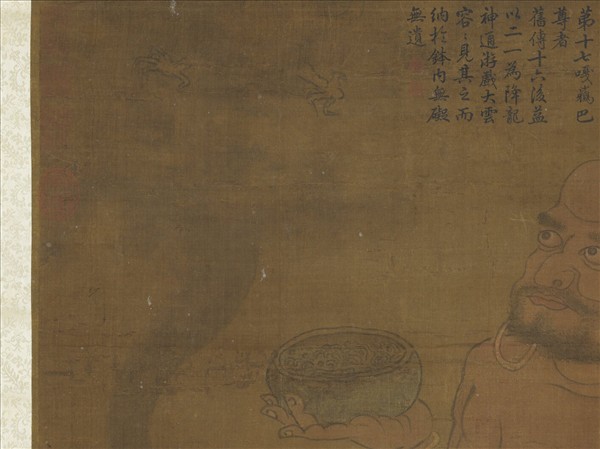 第十七嘎巴
尊者
舊傳十六後益
以二一為降龍
神通游戲大雲
容〻見其之而
納於鉢內無礙
無遺